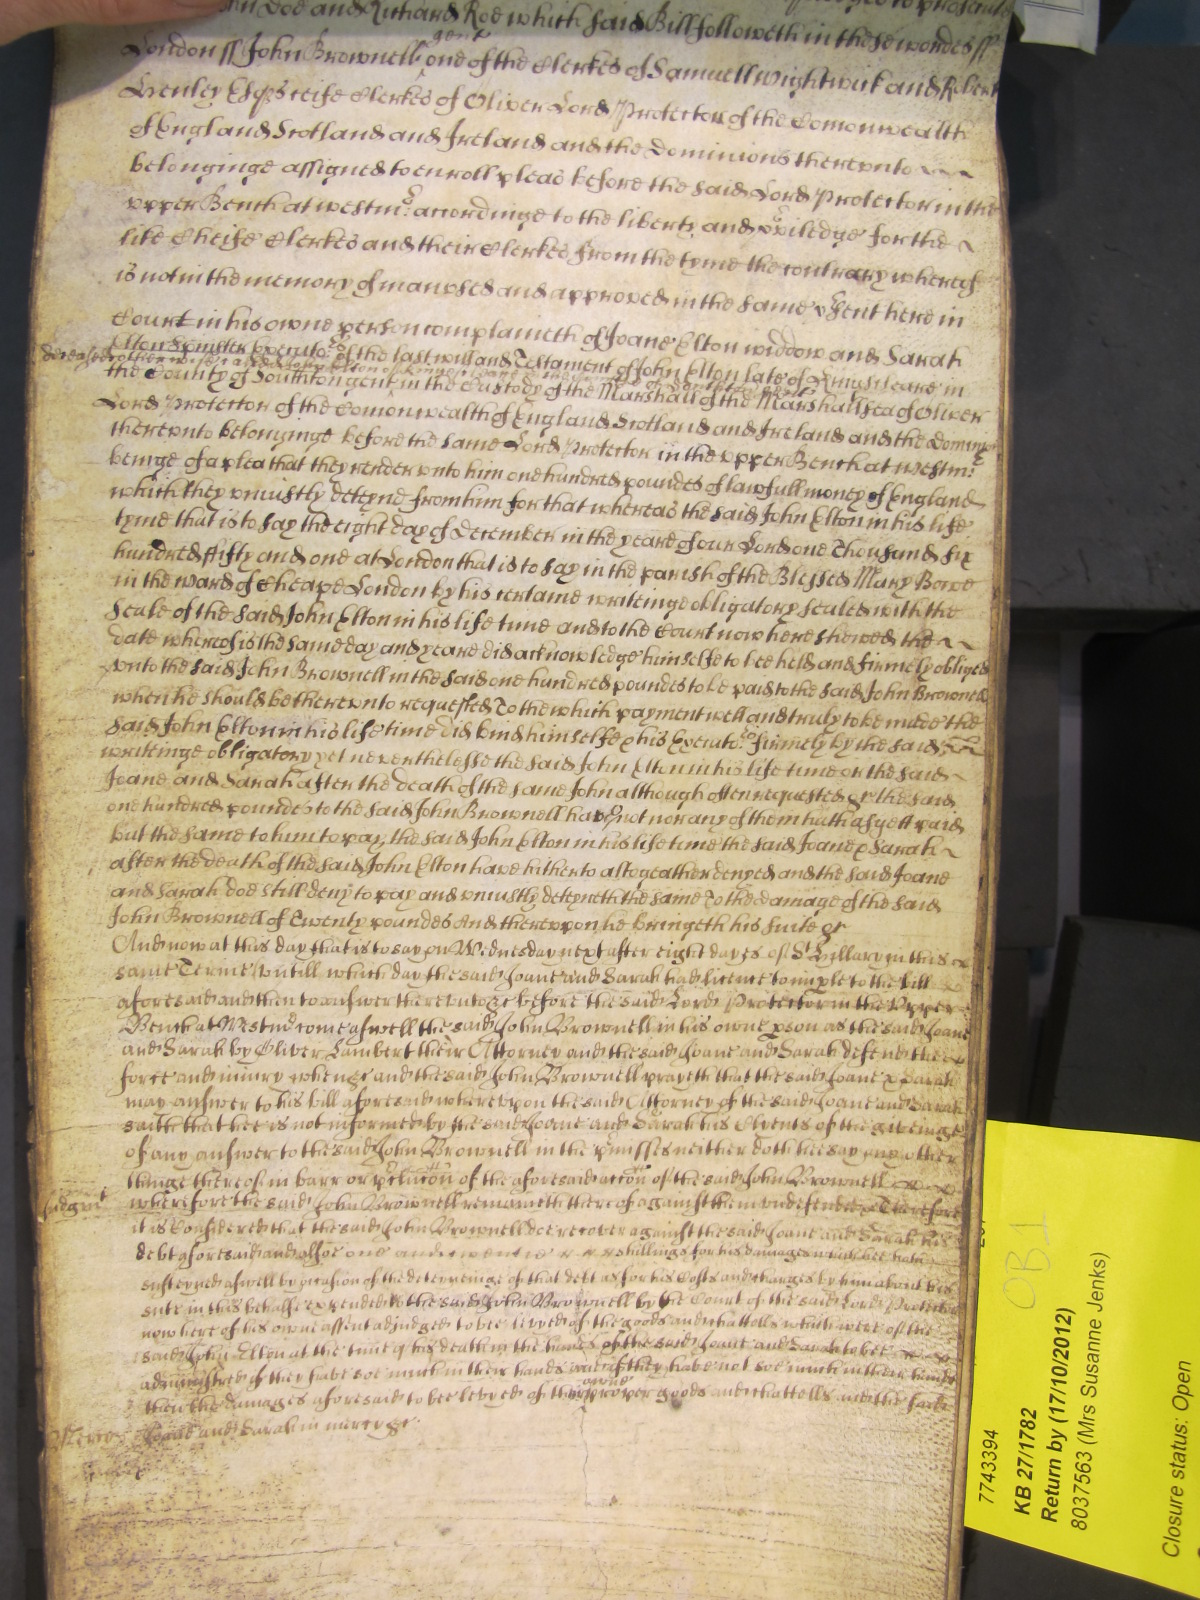 John Doe and Richard Roe which said Bill followeth in these wordes ss
gent
London ss John Brownell one of the Clerkes of Samuell Wightwick and Robert
Henley Esqrs cheife Clerkes of Oliver Lord Protector of the Comonwealth
of England Scotland and Ireland and the Dominions thereunto
belonginge assigned to enroll pleas before the said Lord Protector in the
upper Bench at westmr. accordinge to the liberty and priviledge for the
like Cheife Clerkes and their Clerkes from the tyme the contrary whereof
is not in the memory of man used and approved in the same present here in
Court in his owne person complaineth of Joane Elton widdow and Sarah
Elton Spinster Executors of the last will and Testament of John Elton late of Kingscleare in
deceased
the County of Southton gent in the Custody of the Marshall of the Marshallsea of Oliver
Lord Protector of the Comonwealth of England Scotland and Ireland and the Dominions
thereunto belonginge before the same Lord Protector in the upper Bench at westmr.
beinge of a plea that they render unto him one hundred poundes of lawfull money of England
which they uniustly deteynd from him for that whereas the said John Elton in his life
tyme that is to say the eight day of December in the yeare of our Lord one Thousand six
hundred fifty and one at London that is to say in the parish of the Blessed Mary Bowe
in the ward of Cheape London by his certaine writeinge obligatory sealed with the
Seale of the said John Elton in his life time and to the Court now here shewed the
date whereof is the same day and yeare did acknowledge himselfe to bee held and firmely obliged
unto the said John Brownell in the said one hundred poundes to be paid to the said John Brownell
when he should be thereunto requested To the which payment well and truly to be made the
said John Elton in his life time did bind himselfe & his Executors firmely by the said
writeinge obligatory yet neverthelesse the said John Elton in his life time or the said
Joane and Sarah after the death of the same John although often requested &c the said
one hundred poundes to the said John Brownell have not nor any of them hath as yett paid
but the same to him to pay the said John Elton in his life time the said Joane & Sarah
after the death of the said John Elton have hitherto altogeather denyed and the said Joane
and Sarah doe still deny to pay and uniustly deteyneth the same To the damage of the said
John Brownell of Twenty poundes And thereupon he bringeth his suite &c
And now at this day that is to say on Wednesday next after eight dayes of St Hillary in this
same Terme untill which day the said Joane and Sarah had licence to imple to the bill
aforesaid and then to answer thereunto &c before the said Lord Protector in the Upper
Bench at Westmr come aswell the said John Brownell in his owne pson as the said Joane
and Sarah by Oliver Lambert their Attorney and the said Joane and Sarah defend the
force and iniury when &c and the said John Brownell prayeth that the said Joane & Sarah
may answer to his bill aforesaid whereupon the said Attorney of the said Joane and Sarah
saith that hee is not informed by the said Joane and Sarah his Clyents of the giveinge
of any answer to the said John Brownell in the pmisses neither doth hee say any other
thinge thereof in barr or pclucon of the aforesaid accon of the said John Brownell
wherefore the said John Brownell remaineth thereof against them undefended Therefore
Judgmt
it is Considered that the said John Brownell doe recover against the said Joane and Sarah his
debt aforesaid and alsoe one and twentie shillings for his damages which hee hath
susteyned aswell by occasion of the deteyneinge of that debt as for his Costs and charges by him about his
sute in this behalfe expended to the said John Brownell by the Court of the said Lord Protector
now here of his owne assent adjudged to bee levyed of the goods and chattells which were of the
said John Elton at the time of his death in the hands of the said Joane and Sarah to bee
administred if they have soe much in their hands and if they have not soe much in their hands
owne
then the damages aforesaid to bee levyed of their proper goods and chattells and the said
Joane and Sarah in mercy &c
Mercy
7743394
KB 27/1782
Return by (17/10/2012)
8037563 (Mrs Susanne Jenks)
Closure status: Open
OB1